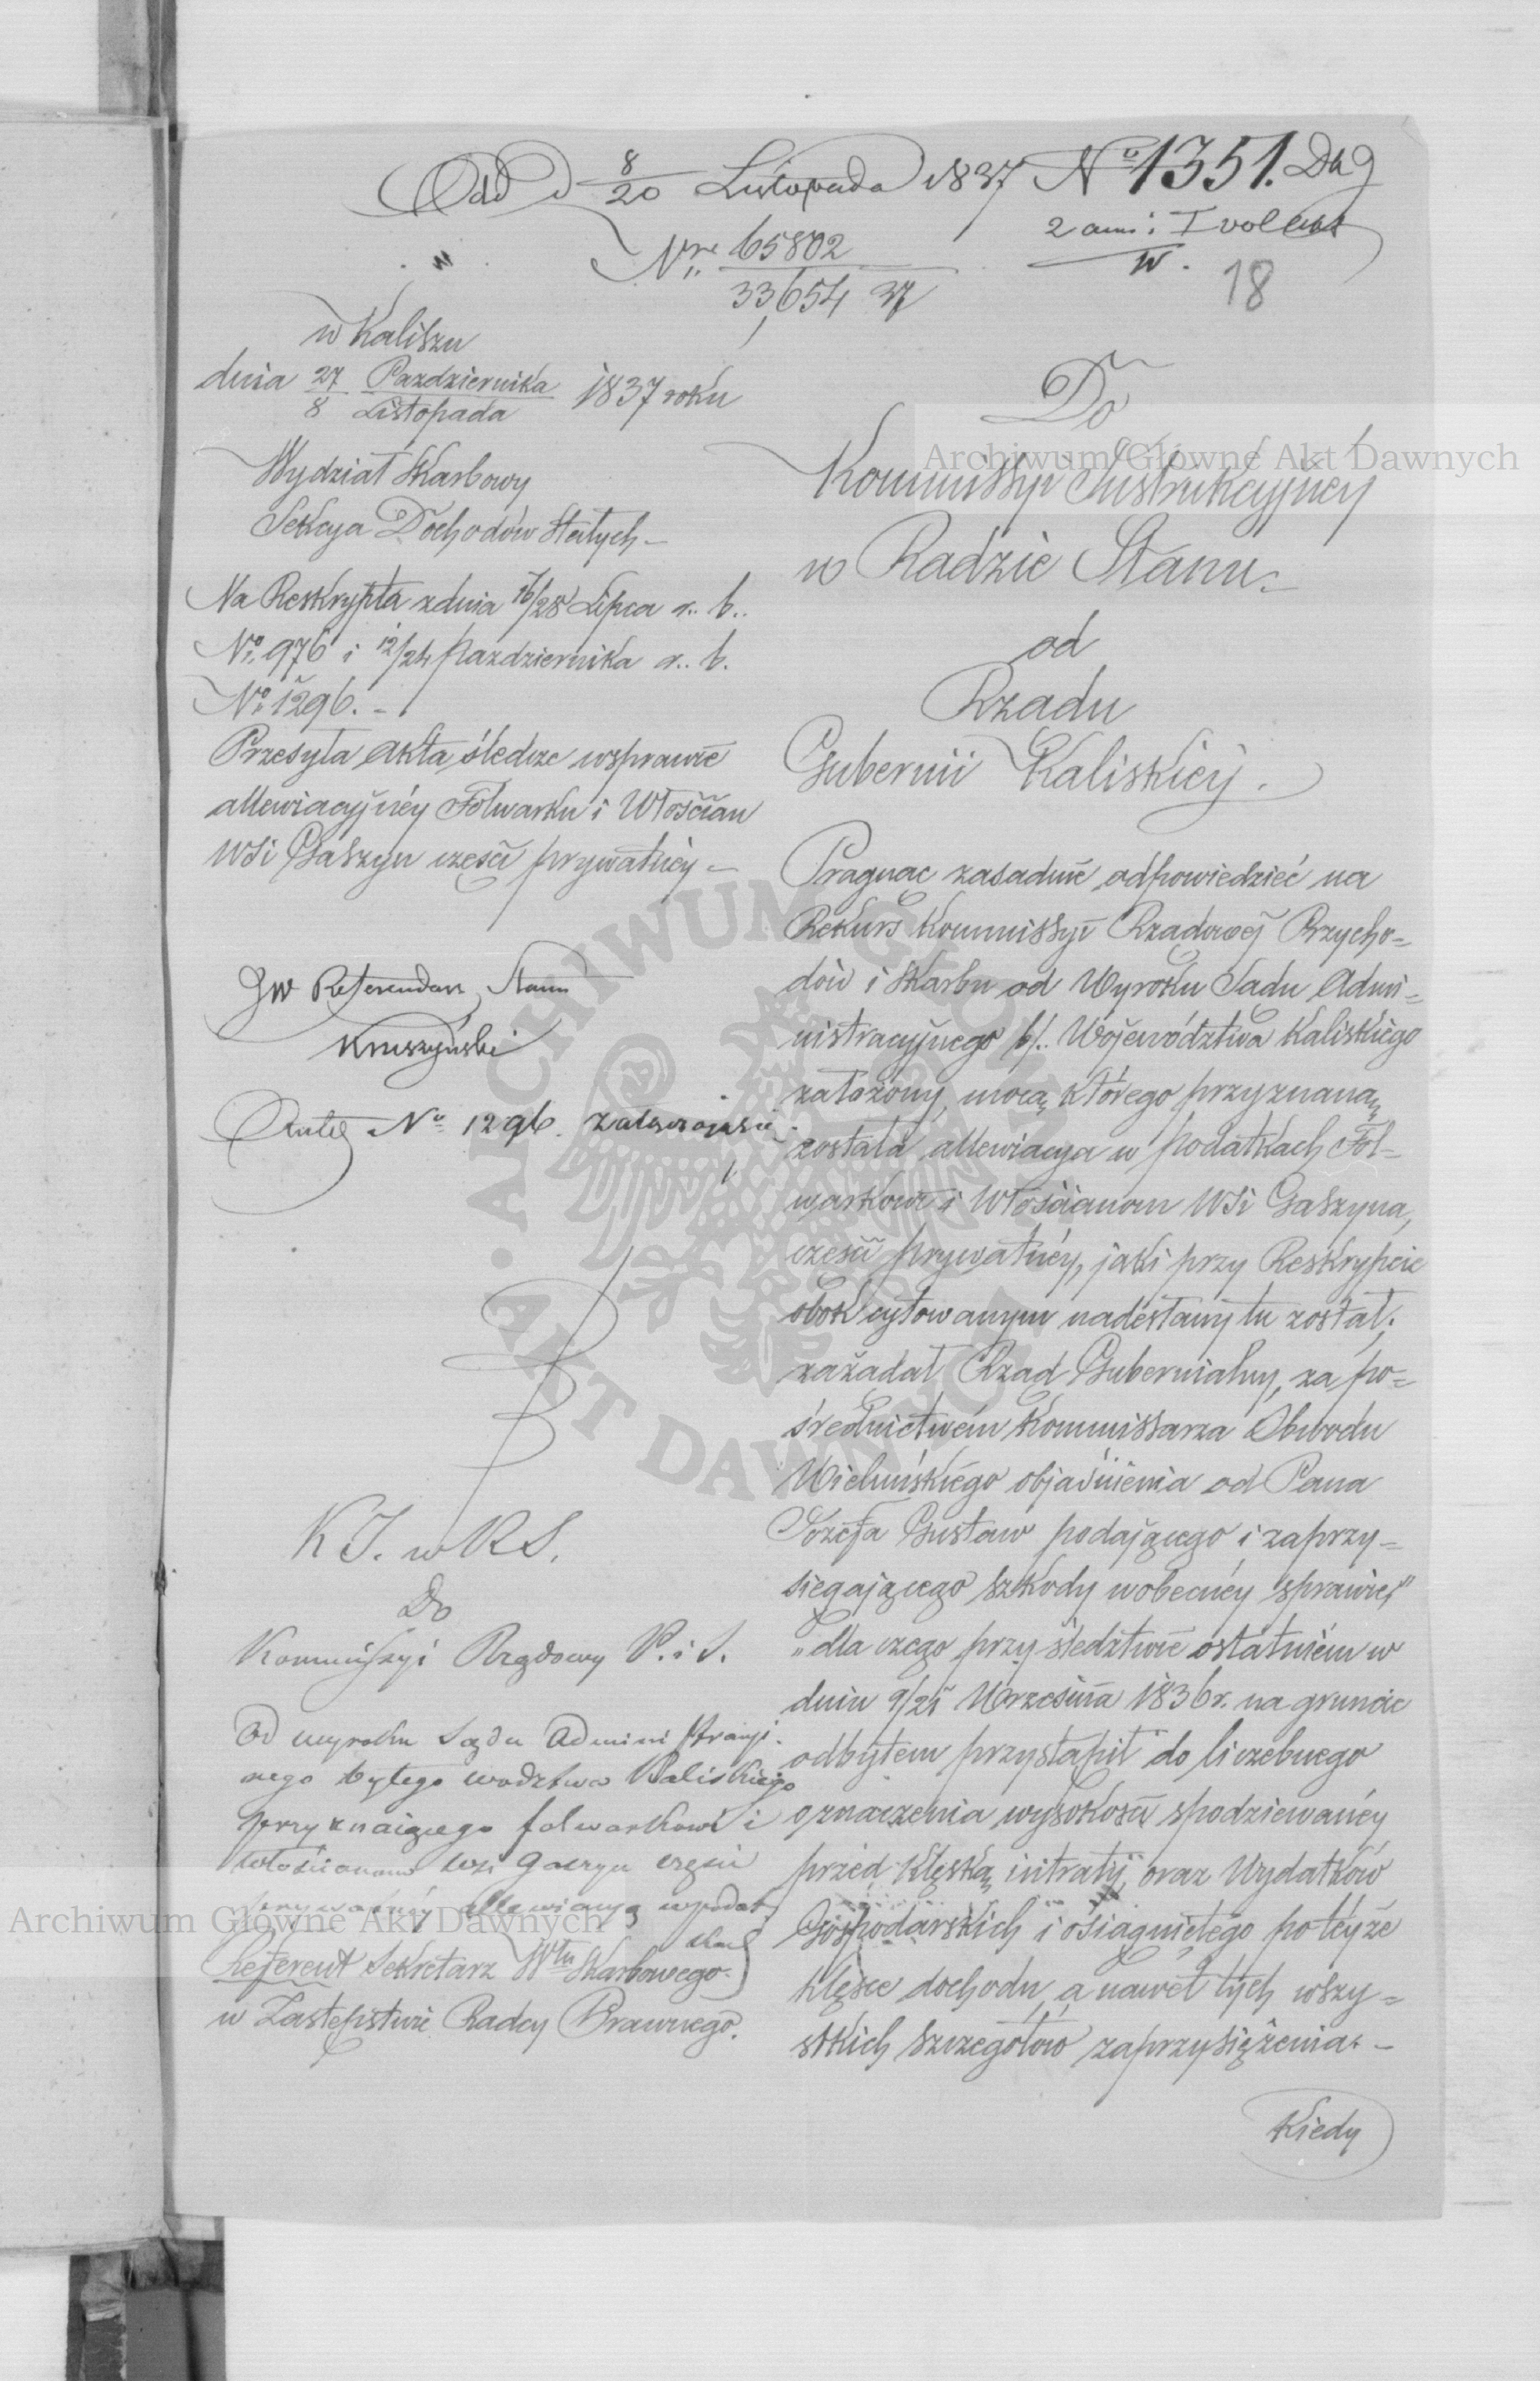 Odd d 8/20 Listopada 1837 No 1351.
Nre 65802
33,654 37
18
w Kaliszu
dnia 27 Pazdziernika 1837 roku
8 Listopada
Wydział Skarbowy
Sekcya Dochodów Stałych –
Na Reskrypta z dnia 16/28 Lipca r. b.
No 976 i 12/24 Pazdziernika r. b.
No 1296. –
Przesyła Akta śledcze w sprawie
allewiacyjnéy Folwarku i Włościan
WSi Gaszyn częsci prywatnéy –
JW Referendarz Stanu
Kruszyński
No 1296.
K J. w R S.
Do
Kommissyi Rządowy P. i S.
Od wyroku Sądu Administracyi-
nego byłego wodztwa Kaliskiego
przyznaiącego folwarkowi i
włościanom wsi Gaszyn częsci
prywatnéy allewiacyą w podat
Referent Sekretarz Włu Skarbowego.
w Zastępstwie Radcy Prawnego.
Do
Kommissyi Instrukcyjney
w Radzie Stanu.
od
Rządu
Gubernii Kaliskiey.
Pragnąc zasadnie odpowiedzieć na
Rekurs Kommissyi Rządowéj Przycho=
dów i Skarbu od Wyroku Sądu Admi=
nistracyjnego b. Województwa Kaliskiego
założony, mocą którego przyznaną
została allewiacya w podatkach Fol=
warkowi i Włościanom WSi Gaszyna,
częsci prywatnéy, jaki przy Reskrypcie
obok cytowanym nadesłany tu został;
zażądał Rząd Gubernialny, za po=
średnictwem Kommissarza Obwodu
Wieluńskiego objaśnienia od Pana
Józefa Gustaw podającego i zaprzy=
sięgającego szkody w obecnéy sprawie,
„dla czego przy śledztwie ostatniém w
dniu 9/21 Września 1836 r. na gruncie
odbytem przystąpił do liczebnego
oznaczenia wysokości spodziewanéy
przed klęską intraty, oraz Wydatków
Gospodarskich i osiągniętego po téyże
klęsce dochodu, a nawet tych wszy=
stkich szczegółów zaprzysiężenia. –
Kiedy
Archiwum Główne Akt Dawnych
Archiwum Główne Akt Dawnych
ARCHIWUM GŁÓWNE
AKT DAWNYCH